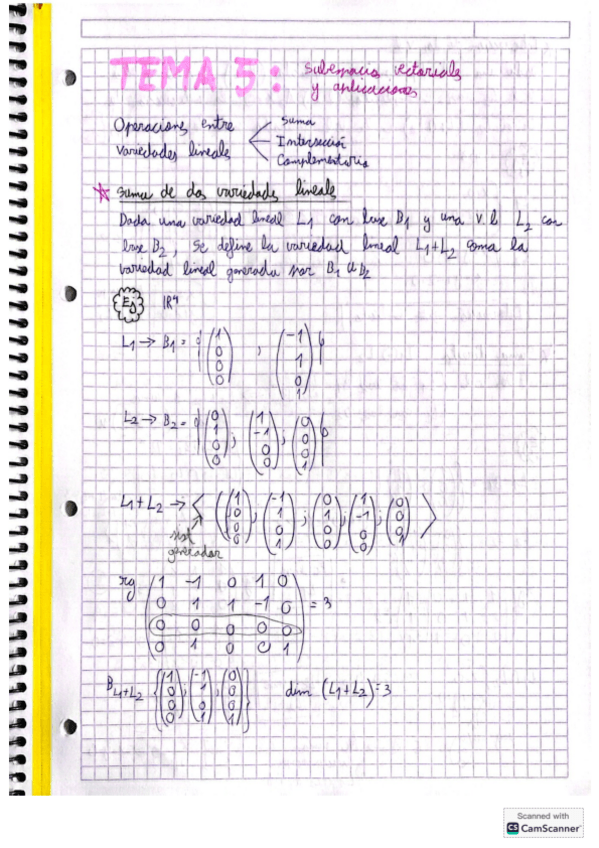 TEMA 5: Subespacios vectoriales
y aplicaciones
Operacions entre
variedades lineales
Suma
Intersección
Complementario
☆ suma de dos variedades lineales
Dada una variedad lineal L1 con base B1 y una v.l. L2 con
base B2, se define la variedad lineal L1+L2 como la
variedad lineal generada por B1 U B2
Ej IR⁴
L1 → B1 = { (1 0 0 0) , (-1 1 0 1) }
L2 → B2 = { (0 1 0 0) ; (1 -1 0 0) ; (0 0 0 1) }
L1+L2 → < (1 0 0 0) ; (-1 1 0 1) ; (0 1 0 0) ; (1 -1 0 0) ; (0 0 0 1) >
sist
generador
rg ( 1 -1 0 1 0
0 1 1 -1 0
0 0 0 0 0
0 1 0 0 1 ) = 3
B L1+L2 { (1 0 0 0) ; (-1 1 0 1) ; (0 0 0 1) } dim (L1+L2) = 3
Scanned with
CS CamScanner